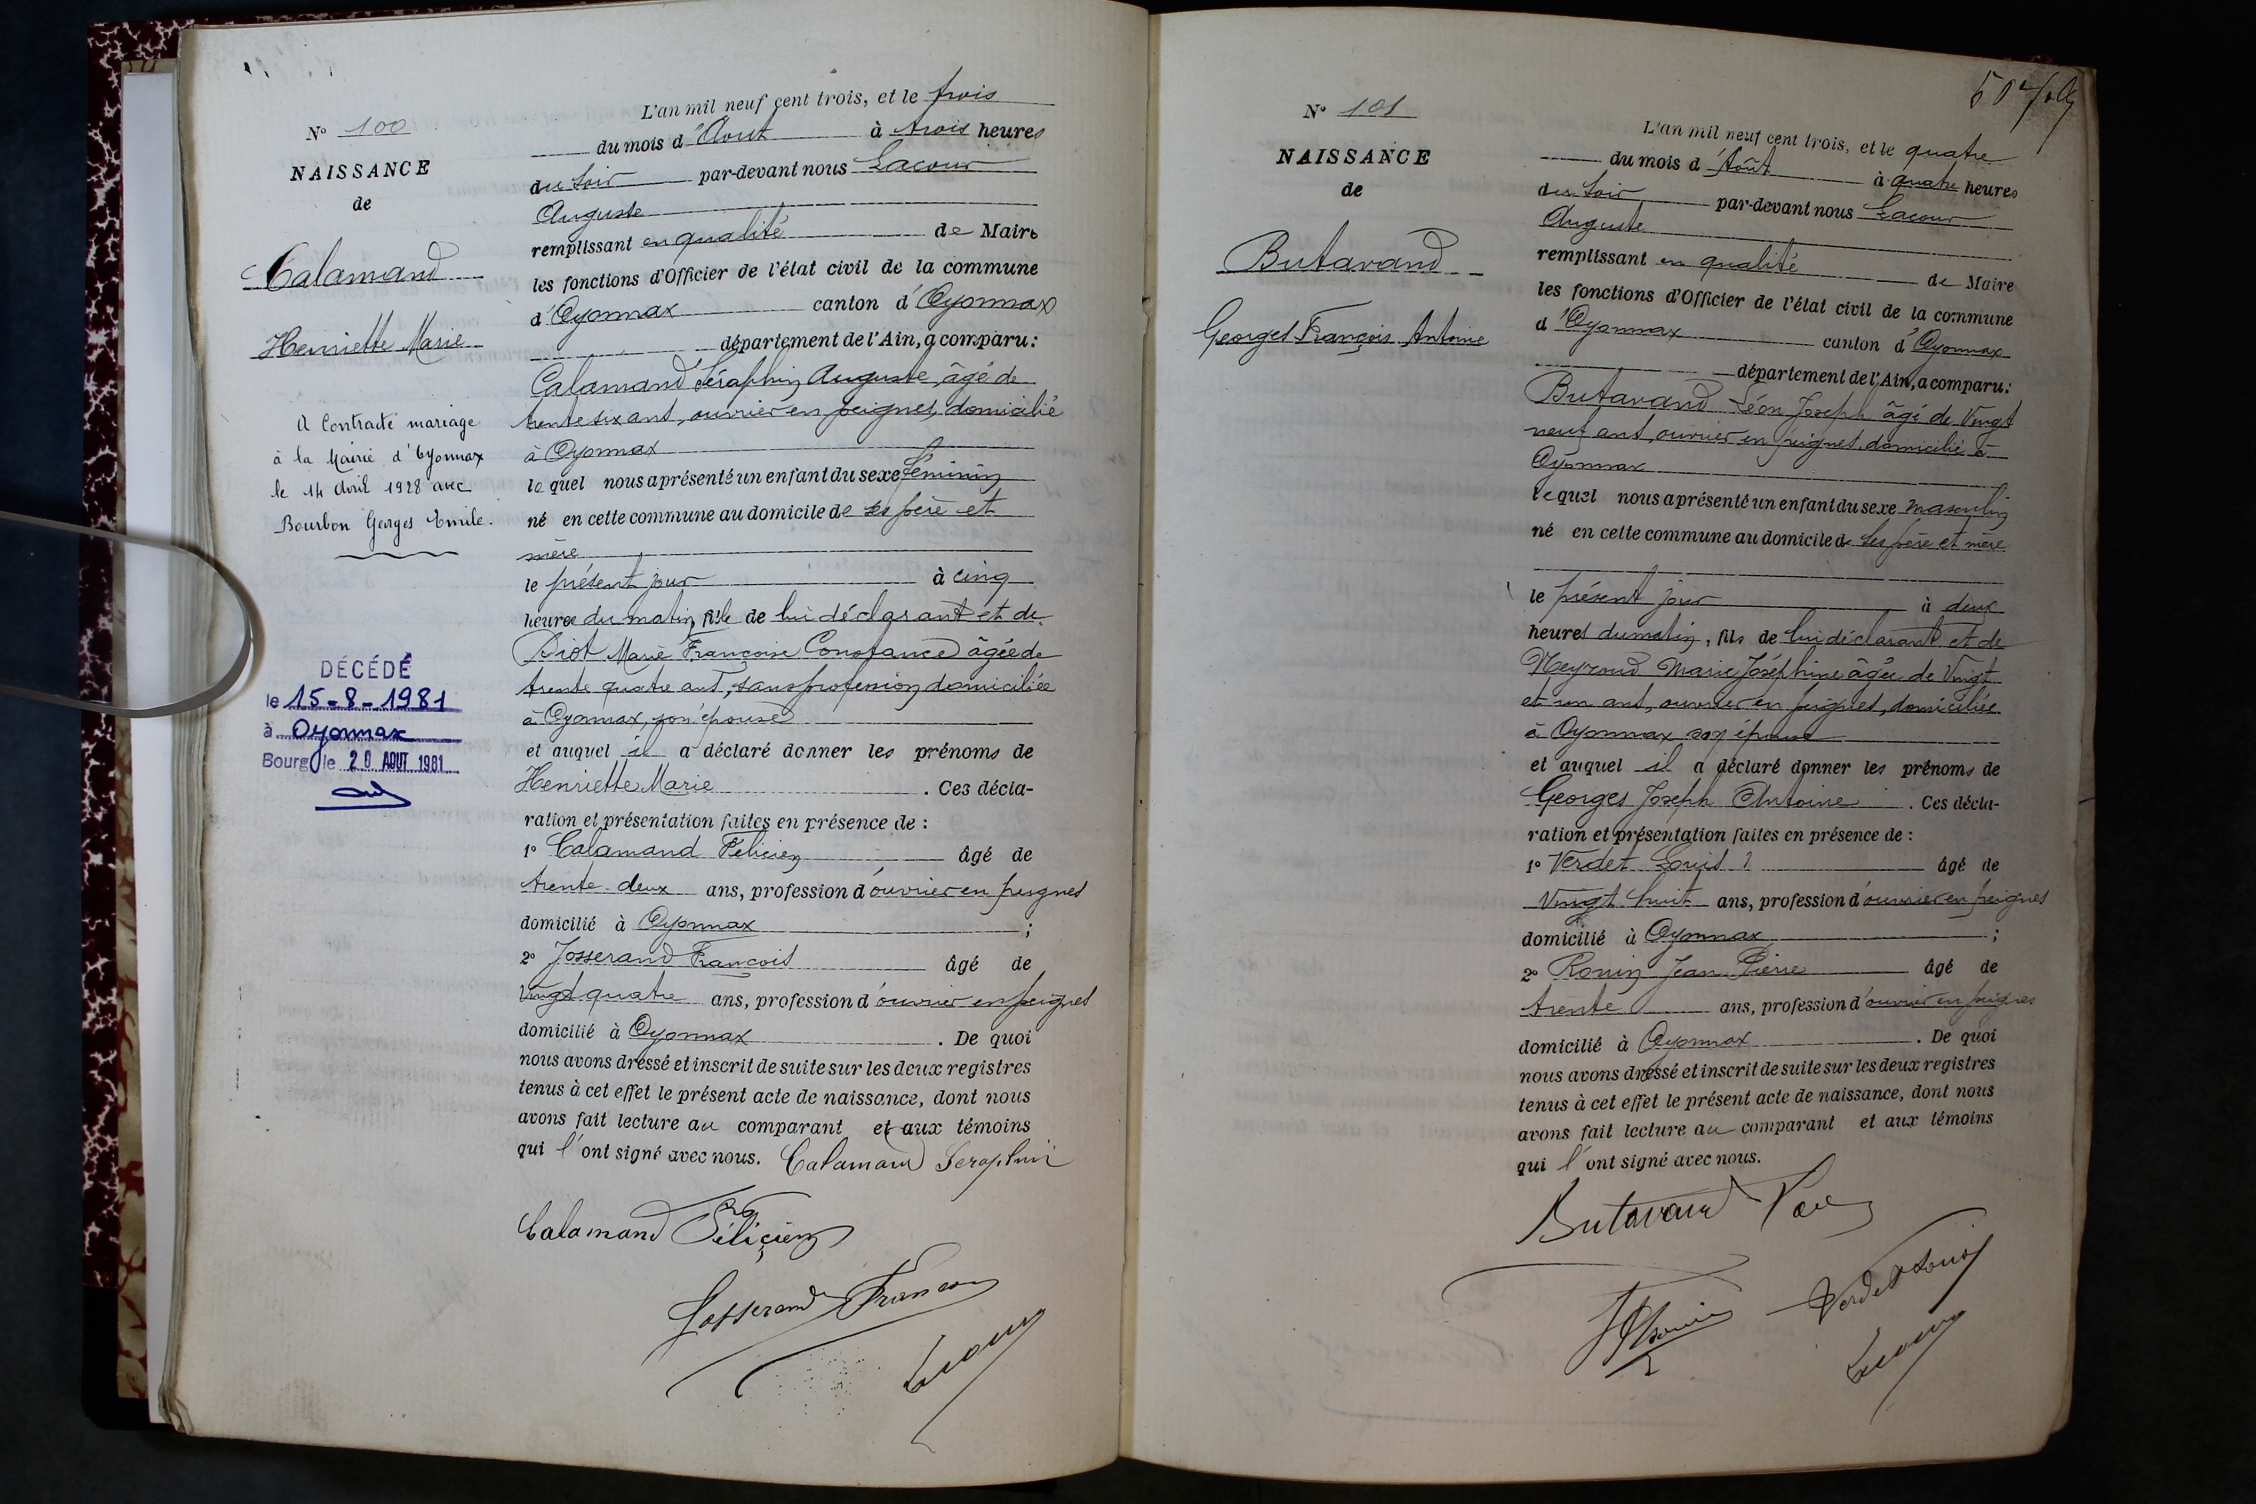 N° 100
NAISSANCE
de
Calamand
Henriette Marie
A Contracté mariage
à la Mairie d'Oyonnax
le 14 Avril 1928 avec
Bourbon Georges Emile.
DÉCÉDÉ
le 15-8-1981
à Oyonnax
Bourg le 20 AOUT 1981
L'an mil neuf cent trois, et le trois
du mois d'Aout à trois heures
du soir par-devant nous Lacour
Auguste
remplissant en qualité de Maire
les fonctions d'Officier de l'état civil de la commune
d'Oyonnax canton d'Oyonnax
département de l'Ain, a comparu:
Calamand Séraphin Auguste, âgé de
trente six ans, ouvrier en peignes, domicilié
à Oyonnax
lequel nous a présenté un enfant du sexe féminin
né en cette commune au domicile de ses père et
mère
le présent jour à cinq
heures du matin, fille de lui déclarant et de
Marie Françoise Constance âgée de
trente quatre ans, sans profession, domiciliée
à Oyonnax, son épouse
et auquel il a déclaré donner les prénoms de
Henriette Marie . Ces décla-
ration et présentation faites en présence de :
1° Calamand Félicien âgé de
trente-deux ans, profession d'ouvrier en peignes
domicilié à Oyonnax ;
2° Josserand François âgé de
Vingt quatre ans, profession d'ouvrier en peignes
domicilié à Oyonnax . De quoi
nous avons dressé et inscrit de suite sur les deux registres
tenus à cet effet le présent acte de naissance, dont nous
avons fait lecture au comparant et aux témoins
qui l'ont signé avec nous. Calamand Seraphin
Calamand Féliçien
Josserand François
Lacour
N° 101
NAISSANCE
de
Butavand
Georges François Antoine
L'an mil neuf cent trois, et le quatre
du mois d'Août à quatre heures
du soir par-devant nous Lacour
Auguste
remplissant en qualité de Maire
les fonctions d'Officier de l'état civil de la commune
d'Oyonnax canton d'Oyonnax
département de l'Ain, a comparu:
Butavand Léon Joseph âgé de Vingt
neuf ans, ouvrier en peignes, domicilié à
Oyonnax
lequel nous a présenté un enfant du sexe masculin
né en cette commune au domicile de ses père et mère
le présent jour à deux
heures du matin, fils de lui déclarant et de
Meyroud Marie Joséphine âgée de Vingt
et un ans, ouvrier en peignes, domiciliée
à Oyonnax son épouse
et auquel il a déclaré donner les prénoms de
Georges Joseph Antoine . Ces décla-
ration et présentation faites en présence de :
1° Verdet Louis âgé de
Vingt huit ans, profession d'ouvrier en peignes
domicilié à Oyonnax ;
2° Ronin Jean Pierre âgé de
trente ans, profession d'ouvrier en peignes
domicilié à Oyonnax . De quoi
nous avons dressé et inscrit de suite sur les deux registres
tenus à cet effet le présent acte de naissance, dont nous
avons fait lecture au comparant et aux témoins
qui l'ont signé avec nous.
Butavand
Verdet Louis
Lacour